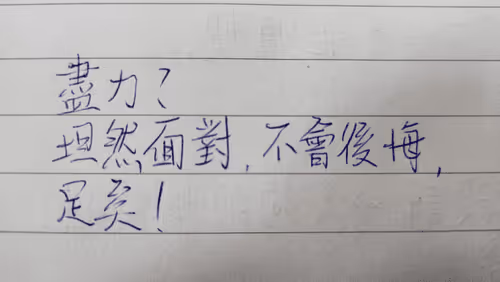 盡力?
坦然面對,不會後悔,
足矣!